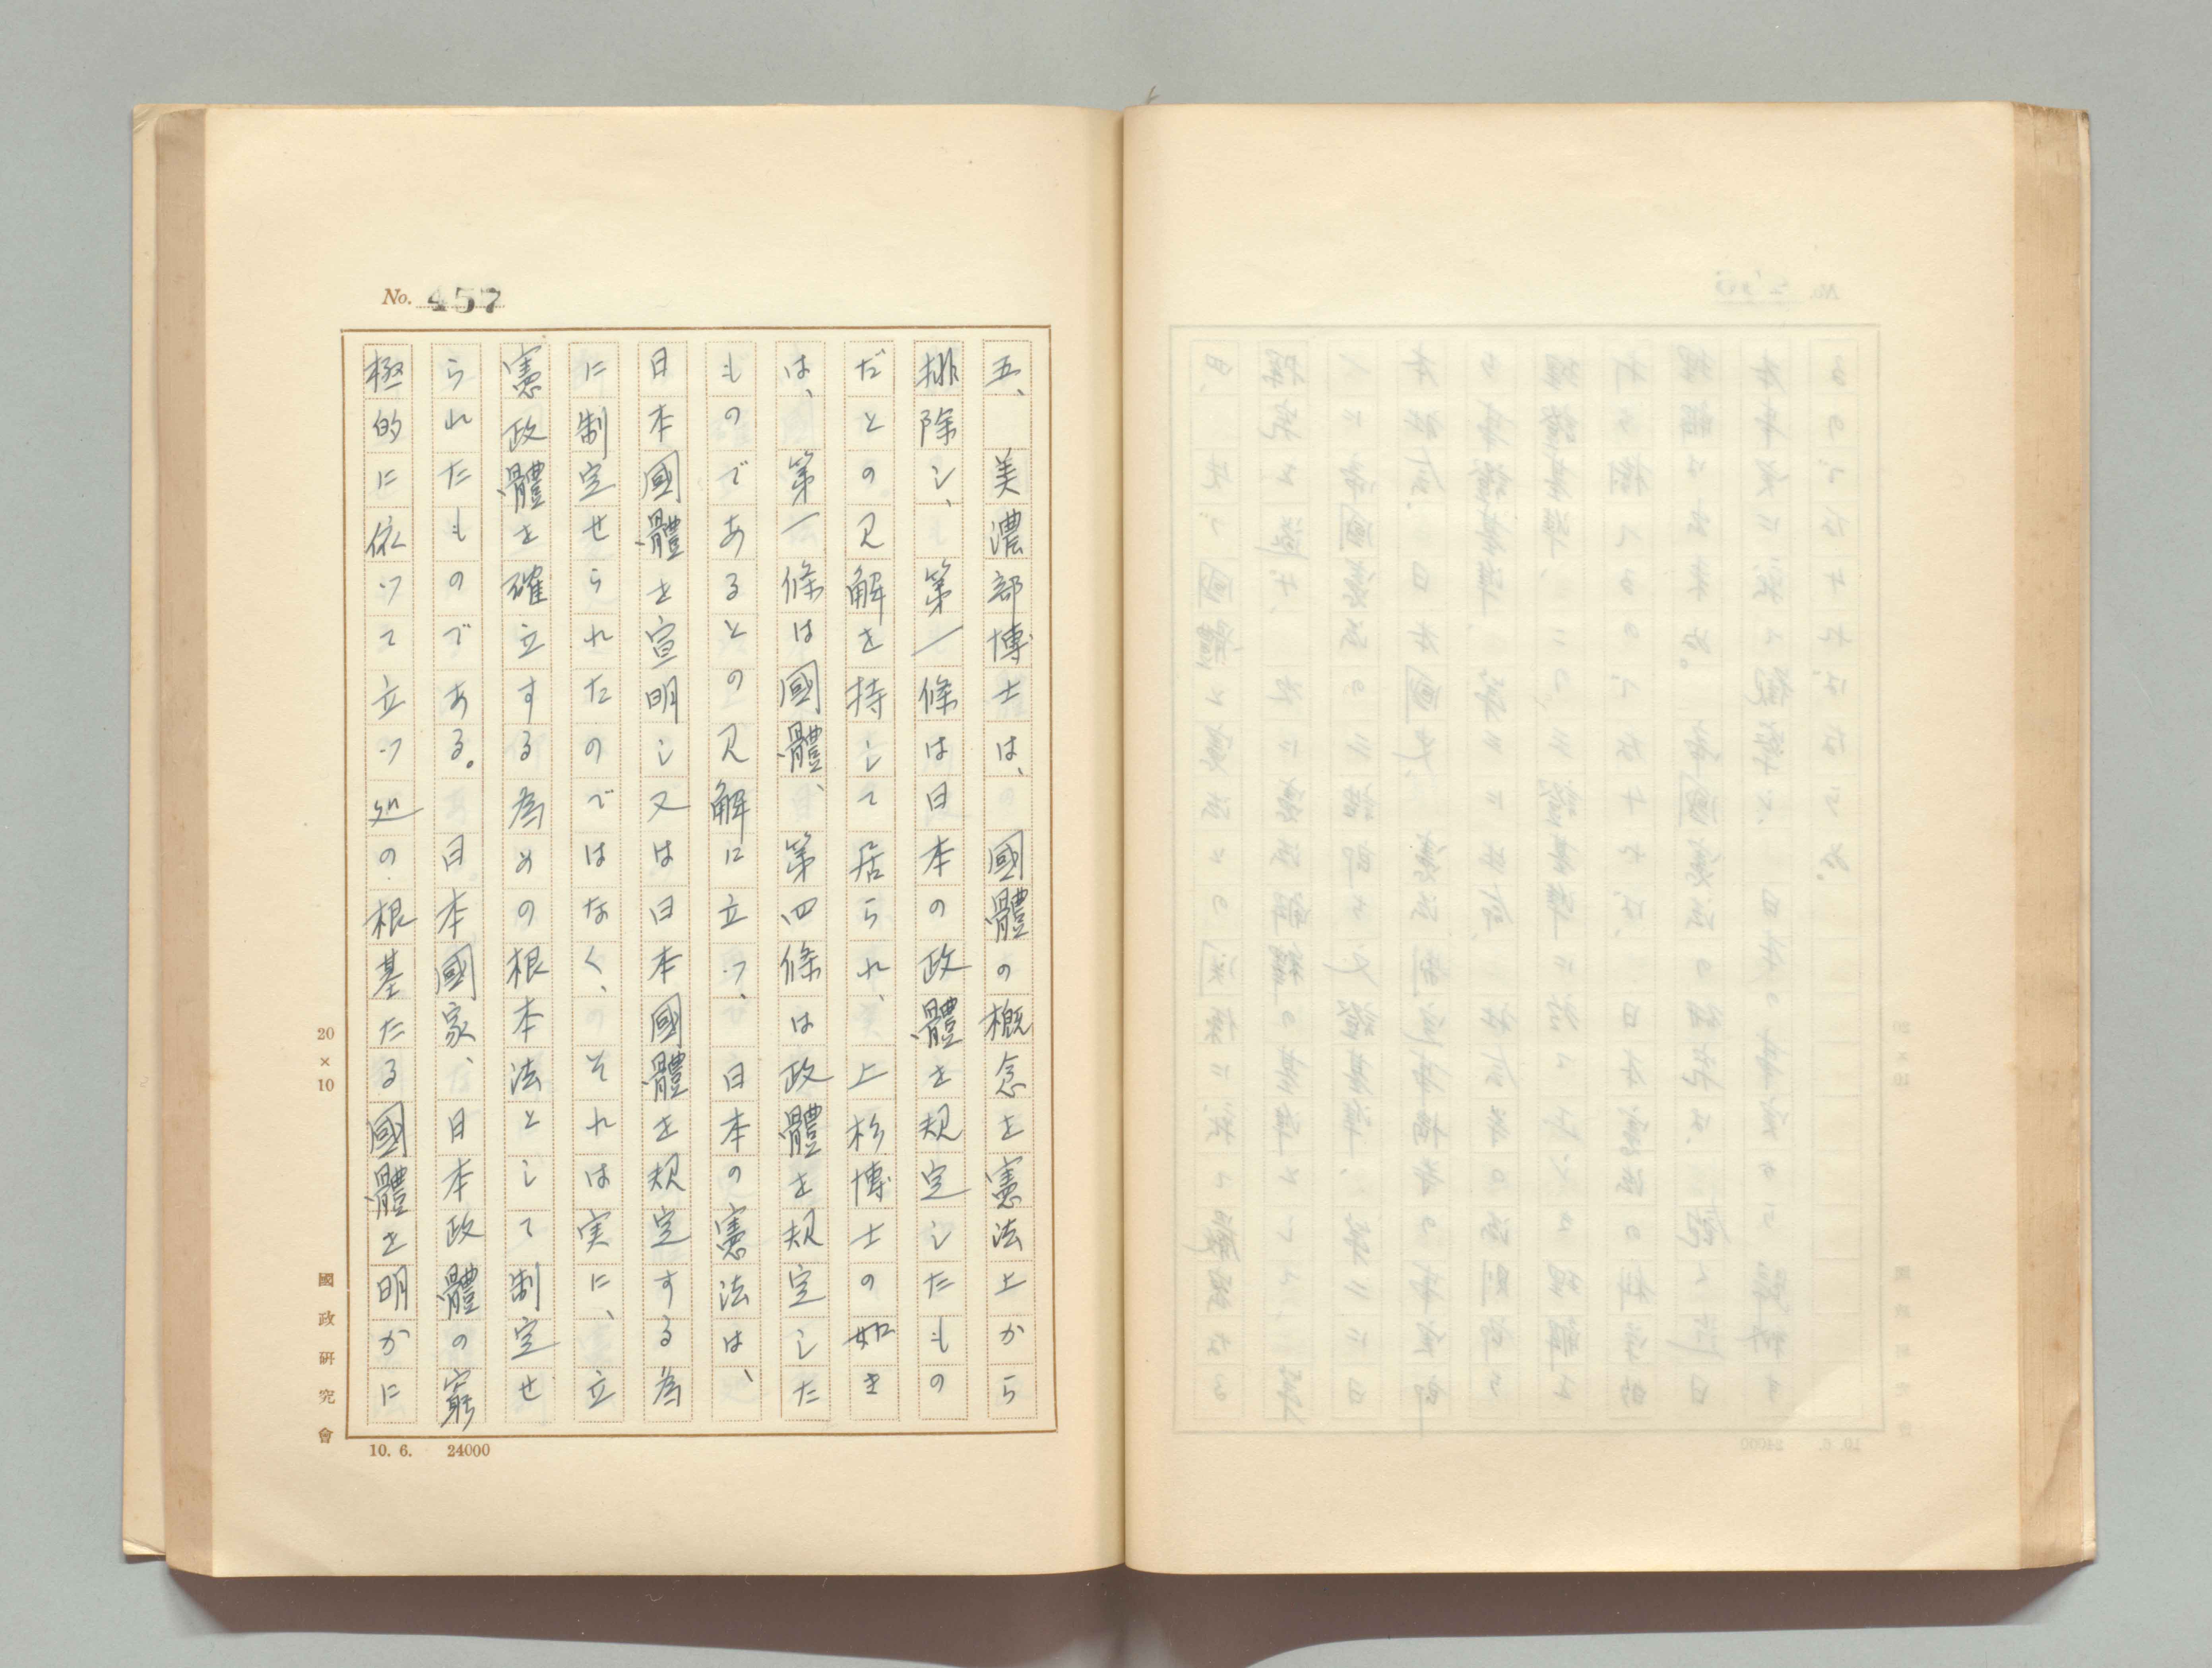 No. 457
五、　美濃部博士は、國體の概念を憲法上から
排除し、第一條は日本の政體を規定したもの
だとの見解を持して居られ、上杉博士の如き
は、第一條は國體、第四條は政體を規定した
ものであるとの見解に立つ、日本の憲法は、
日本國體を宣明し又は日本國體を規定する為
に制定せられたのではなく、それは実に、立
憲政體を確立する為めの根本法として制定せ
られたものである。日本國家、日本政體の窮
極的に依つて立つ処の根基たる國體を明かに
20×10
國政研究會
10. 6.　24000